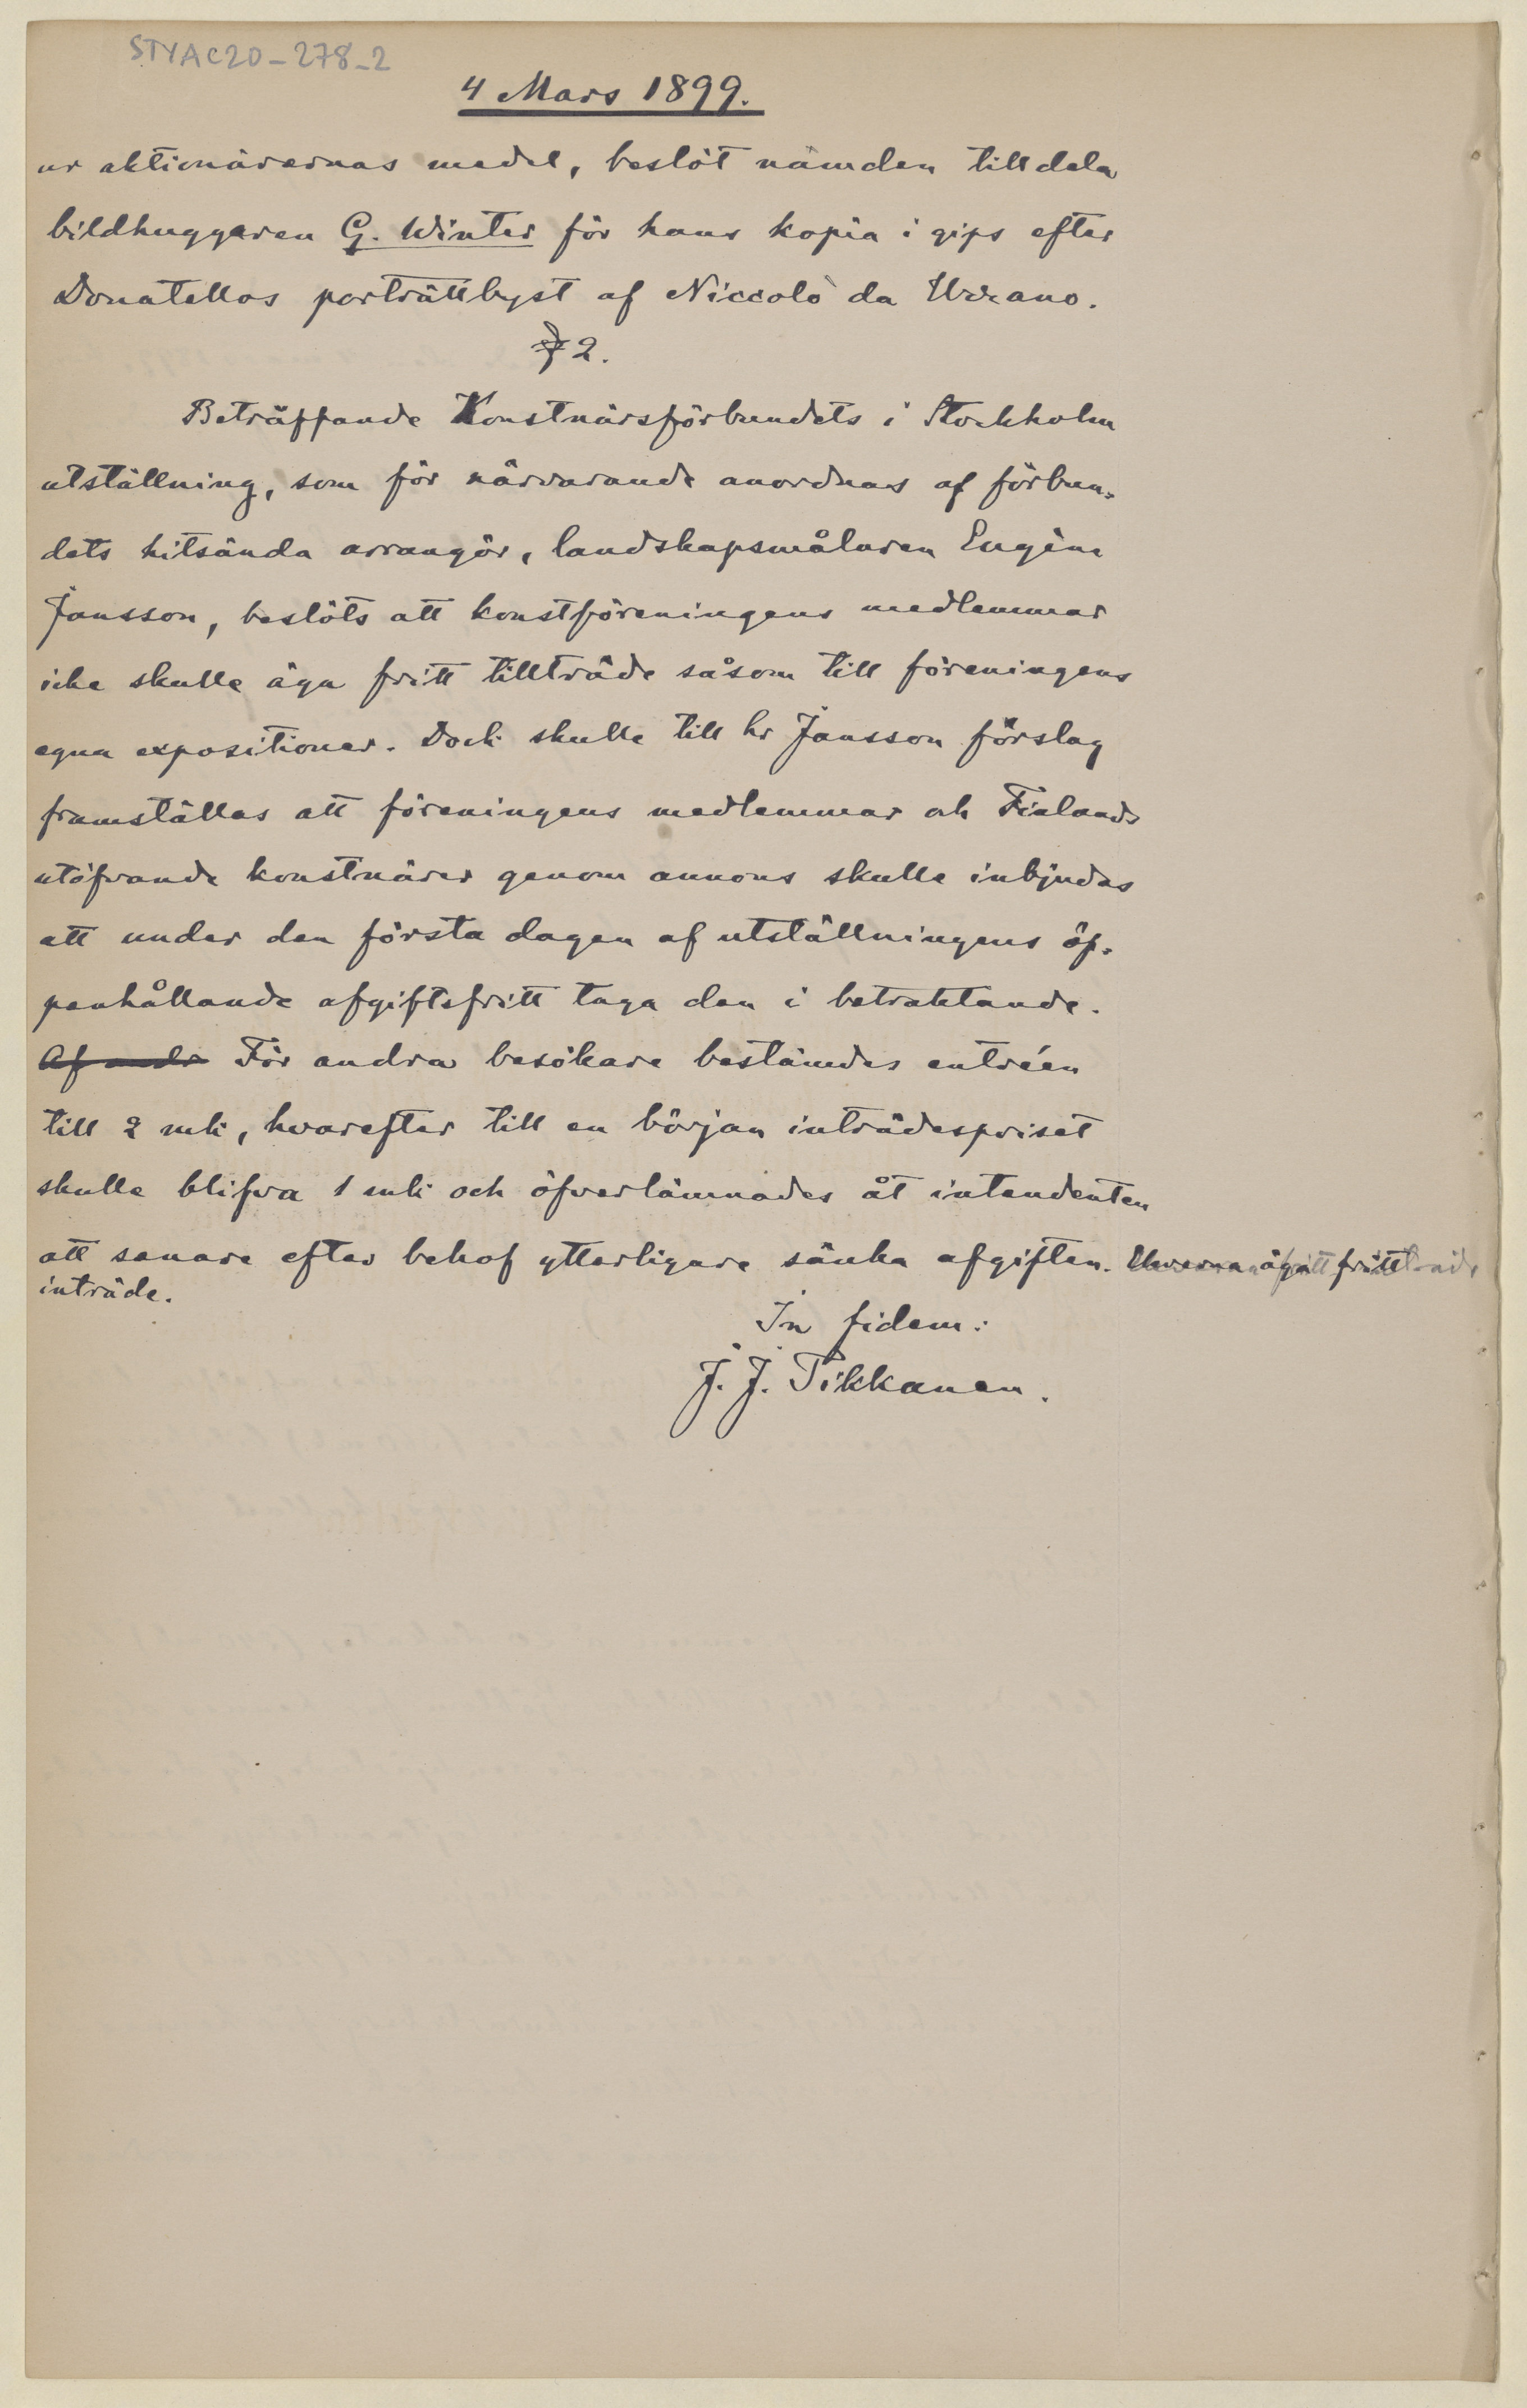 STYAC20-278-2
4 Mars 1899.
ur aktionärernas medel, beslöt nämden tilldela
bildhuggaren G. Winter för hans kopia i gips efter
Donatellos porträttbyst af Niccolò da Uzzano.
§ 2.
Beträffande Konstnärsförbundets i Stockholm
utställning, som för närvarande anordnas af förbun-
dets hitsända arrangör, landskapsmålaren Eugène
Jansson, beslöts att konstföreningens medlemmar
icke skulle äga fritt tillträde såsom till föreningens
egna expositioner. Dock skulle till hr Jansson förslag
framställas att föreningens medlemmar och Finlands
utöfvande konstnärer genom annons skulle inbjudas
att under den första dagen af utställningens öp-
penhållande afgiftsfritt taga den i betraktande.
Af andr För andra besökare bestämdes entréen
till 2 mk, hvarefter till en början inträdespriset
skulle blifva 1 mk och öfverlämnades åt intendenten
att senare efter behof ytterligare sänka afgiften. Elverna äga fritt
inträde.
In fidem:
J. J. Tikkanen.